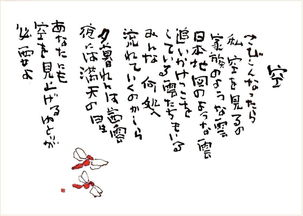 空
さびしくなったら
私 空を見るの
家族のような雲
日本地図のような雲
追いかけっこを
している雲たちもいる
みんな 何処へ
流れていくのかしら
夕暮れには茜雲
夜には満天の星
あなたにも
空を見上げるゆとりが
必要よ